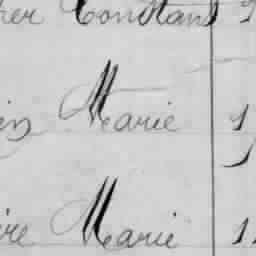 er Constant 2
Marie 1
re Marie 1